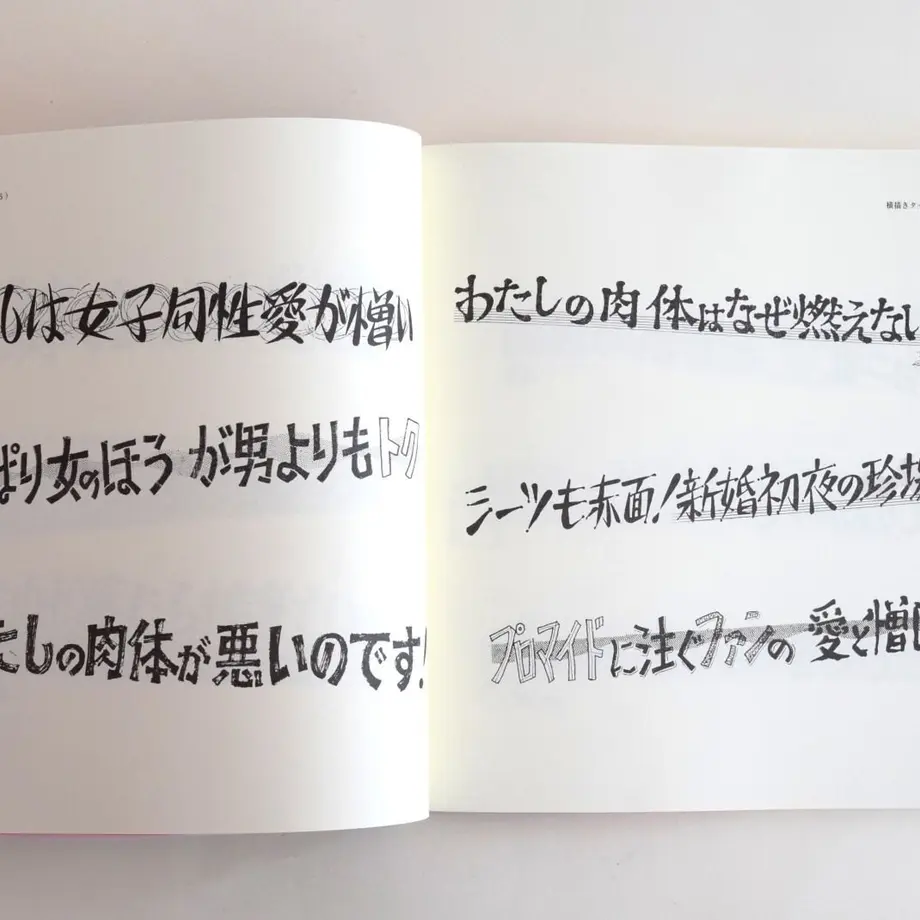 しは女子同性愛が憎い
ぱり女のほうが男よりもトク
たしの肉体が悪いのです!
横描きタ
わたしの肉体はなぜ燃えない
シーツも赤面!新婚初夜の珍場
プロマイドに注ぐファンの愛と憎し